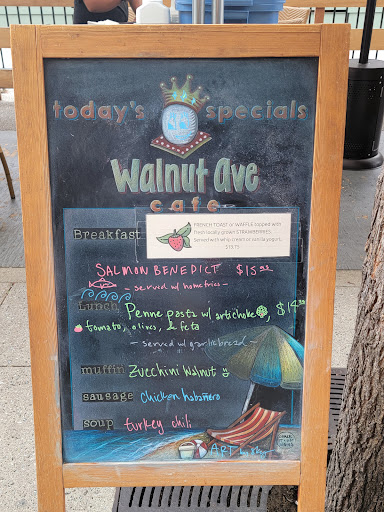 today's specials
Walnut Ave
cafe
Breakfast
FRENCH TOAST or WAFFLE topped with
fresh locally grown STRAWBERRIES.
Served with whip cream or vanilla yogurt.
SALMON BENEDICT $15
- served w/ homefries -
Lunch Penne pasta w/ artichoke $14
tomato, olives, & feta
- served w/ garlic bread -
muffin Zucchini Walnut
sausage Chicken habañero
soup turkey chili
ART by